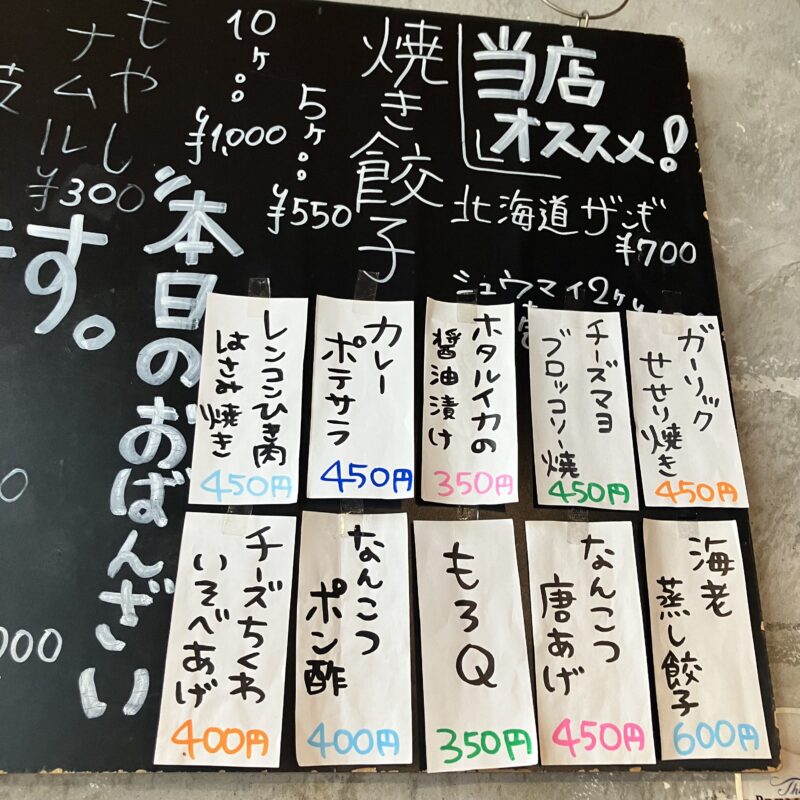 当店
オススメ!
北海道ザンギ
¥700
シュウマイ2ヶ
焼き餃子
5ヶ
¥550
10ヶ
¥1,000
もやし
ナムル
¥300
す。
本日のおばんざい
ガーリック
せせり焼き
450円
チーズマヨ
ブロッコリー焼
450円
ホタルイカの
醤油漬け
350円
カレー
ポテサラ
450円
レンコンひき肉
はさみ焼き
450円
海老
蒸し餃子
600円
なんこつ
唐あげ
450円
もろQ
350円
なんこつ
ポン酢
400円
チーズちくわ
いそべあげ
400円